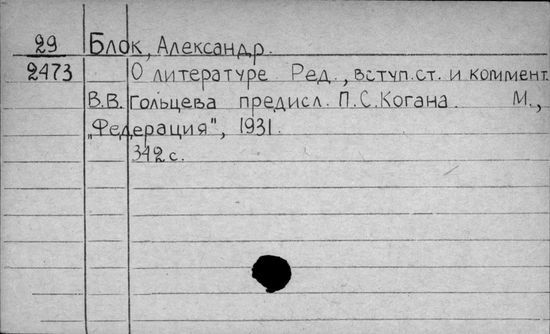 29 Блок, Александр.
2473 О литературе Ред., вступ.ст. и коммент.
В.В. Гольцева предисл. П.С.Когана. М.,
„Федерация", 1931.
342 с.